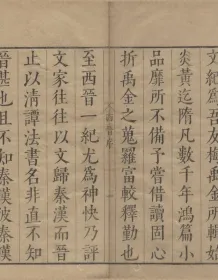 文紀爲吾友梅禹金
炎黃迄隋凡數千年鴻篇小
品靡所不備予嘗借讀固心
折禹金之蒐羅富較釋勤也
至西晉一紀尤爲神快乃評
文家徃徃以文歸秦漢而晉
止以清譚法書名非直不知
晉甚也且不知秦漢彼秦漢